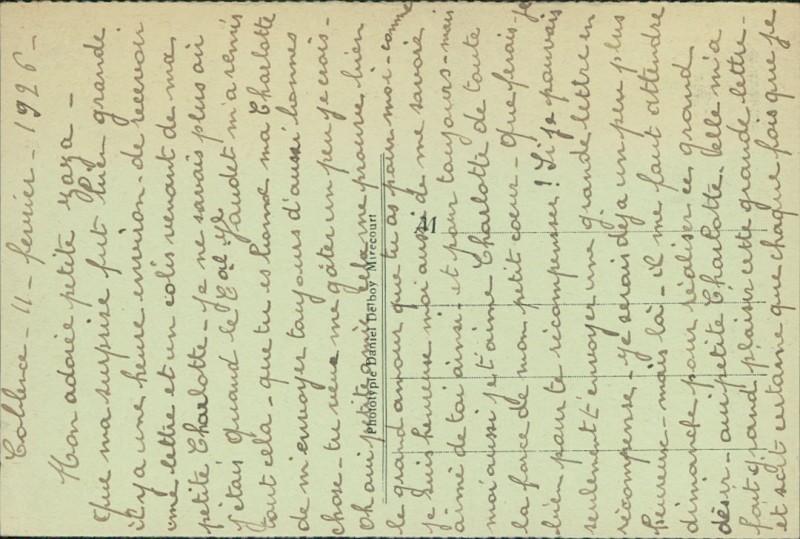 Coblence - 11 - fevrier - 1926 -
Mon adorée petite Zaza -
Que ma surprise fut bien grande
il y a une heure environ - de recevoir
une lettre et un colis venant de ma
petite Charlotte - je ne savais plus où
j'étais quand le Cal Gaudet m'a remis
tout cela - que tu es bonne ma Charlotte
de m'envoyer toujours d'aussi bonnes
chose - tu veux me gâter un peu je crois -
Oh oui petite amie cela me prouve bien
le grand amour que tu as pour moi - comme
je suis heureuse moi aussi de me savoir
aimé de toi ainsi - et pour toujours - mais
moi aussi je t'aime Charlotte de toute
la force de mon petit cœur - Que ferais-je
bien pour te récompenser ! Si je pouvais
seulement t'envoyer une grande lettre en
récompense - je serais déjà un peu plus
heureuse - mais là - il me faut attendre
dimanche pour réaliser ce grand
désir - oui petite Charlotte. Elle m'a
fait grand plaisir cette grande lettre -
et soit certaine que chaque fois que je
Phototypie Daniel Delboy Mirecourt